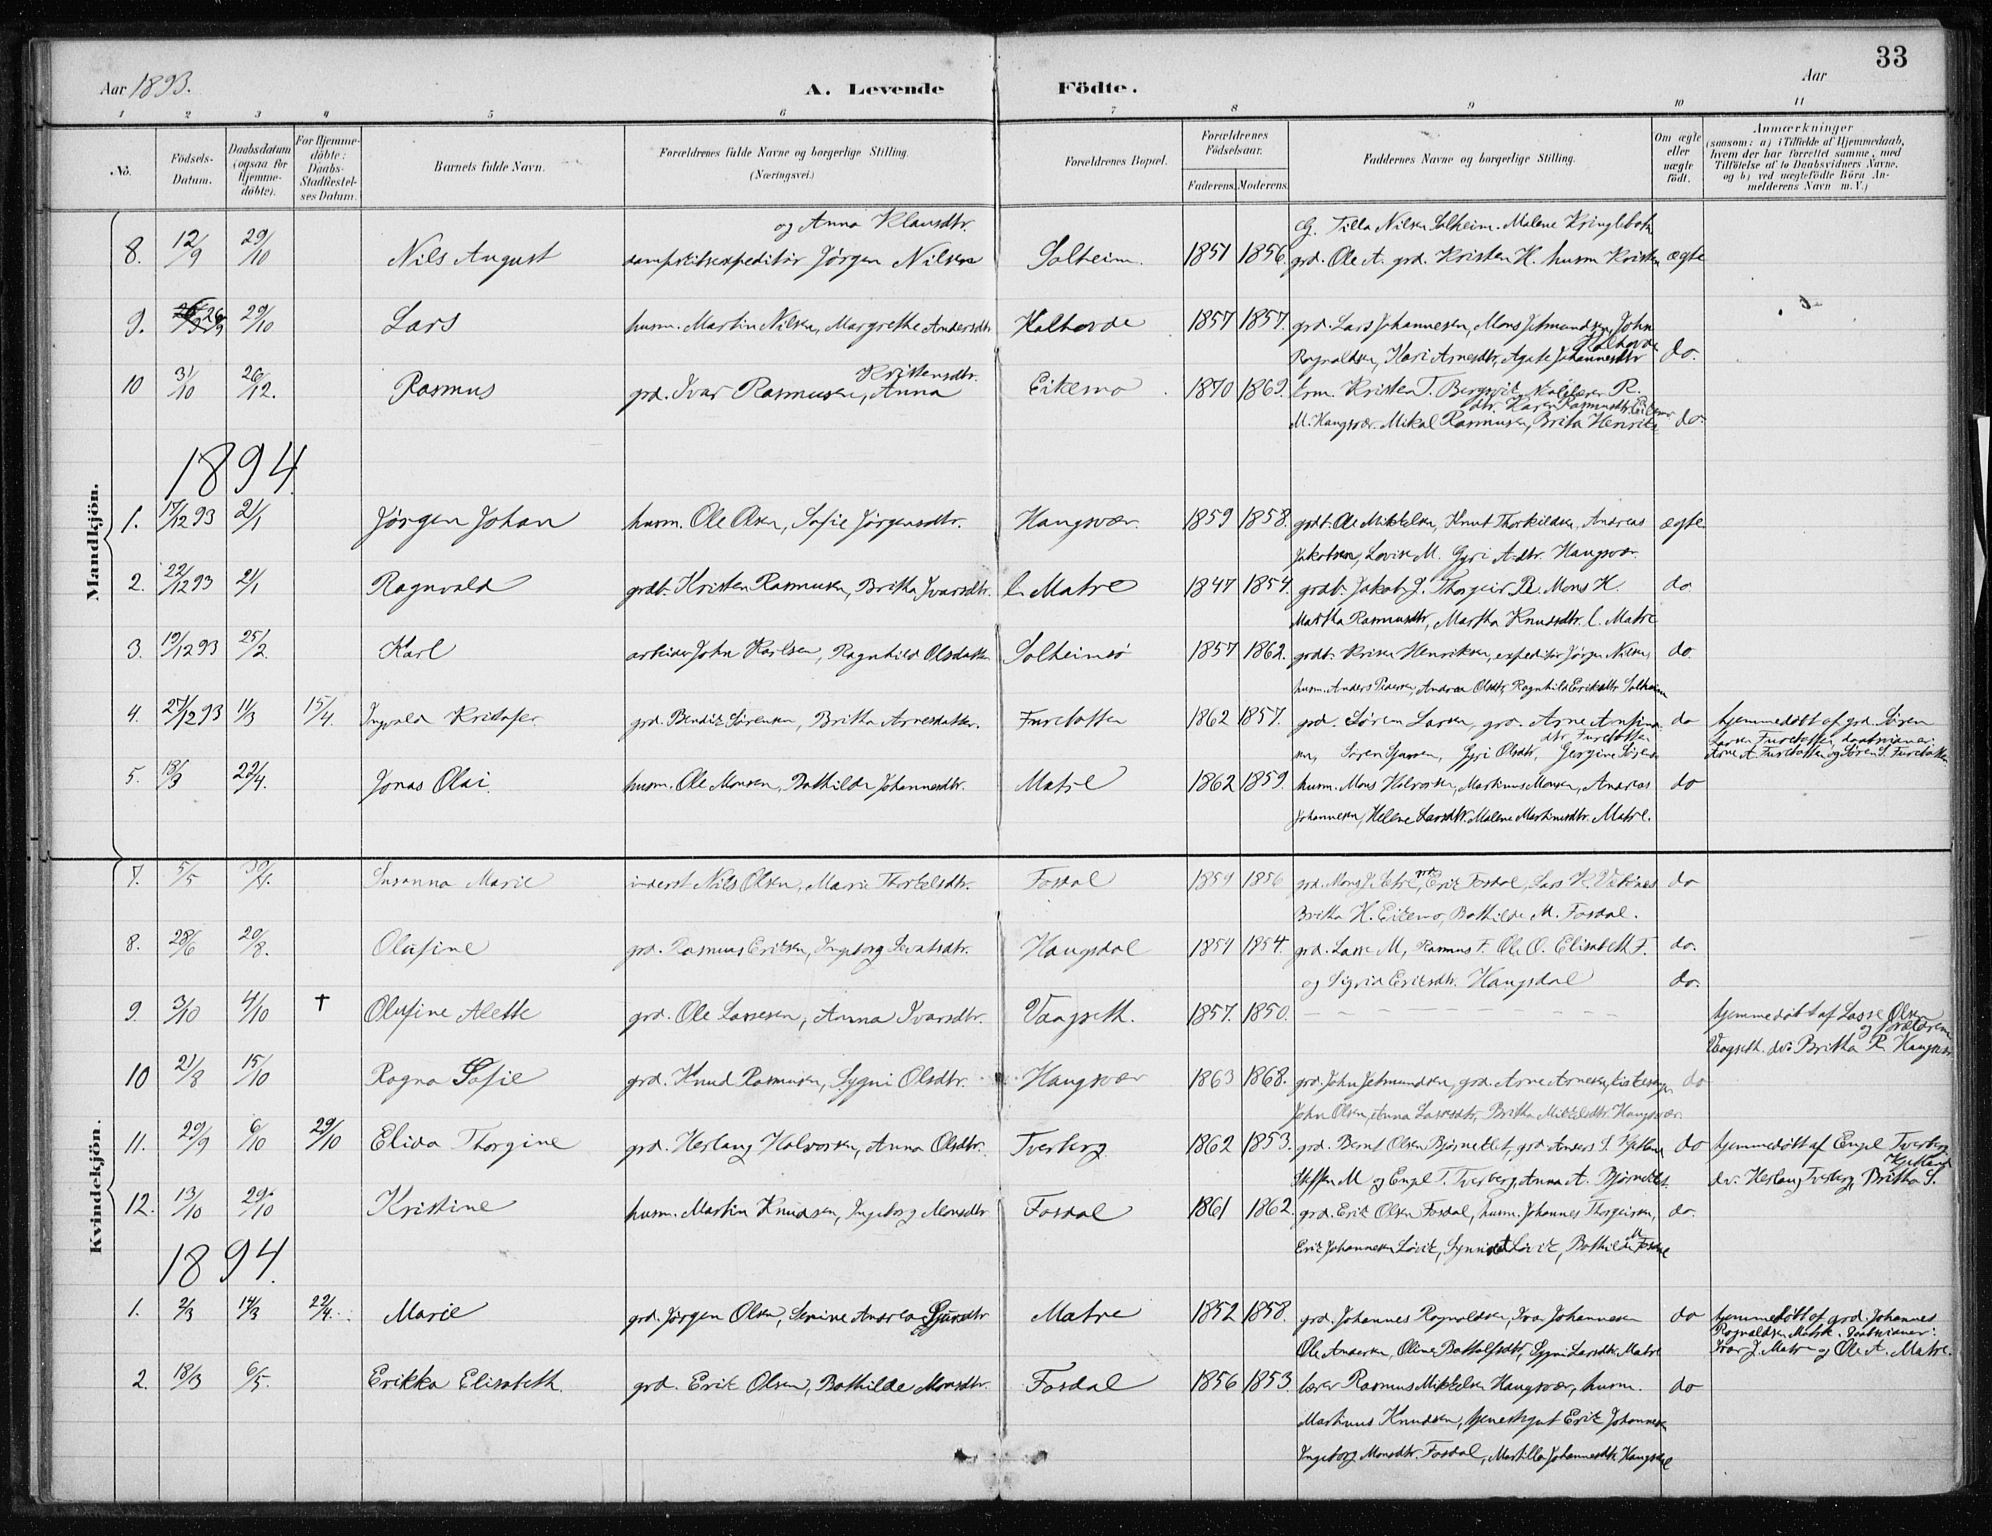 33
Aar 1893.
A. Levende Födte.
Aar
1 2 3 4 5 6 7 8 9 10 11
No.
Födsels-Datum.
Daabsdatum (ogsaa for Hjemme-döbte).
For Hjemme-döbte: Daabs-Stadfæstel-ses Datum.
Barnets fulde Navn.
Forældrenes fulde Navne og borgerlige Stilling. (Næringsvei.)
Forældrenes Bopæl.
Forældrenes Födselsaar.
Faderens. Moderens.
Faddernes Navne og borgerlige Stilling.
Om ægte eller uægte født.
Anmærkninger
(saasom: a) i Tilfælde af Hjemmedaab, hvem der har forrettet samme, med Tilföielse af to Daabsvidners Navne, og b) ved uægtefödte Börn An-melderens Navn m. V.)
Mandkjön.
og Anna Klausdtr. Tilla Nilsen Solheim. Malene Kringlebotn
8. 12/9 29/10 Nils August dampskibsexpeditör Jørgen Nilsen Solheim. 1851 1856. grd. Ole A. grd. Kristen H. husm Kristen ægte
9. 26/9 29/10 Lars husm. Martin Nilsen, Margrethe Andersdtr. Haltovde 1857 1857. grd. Lars Johannesen, Mons Jetmundsen, John
Ragnvaldsen, Kari Arnesdtr, Agate Johannesdtr do.
Kristensdtr.
10 31/10 26/12. Rasmus grd. Ivar Rasmussen, Anna Eikemo 1870 1869. Kristen T. Bergsvik, R.
dtr. Karen Rasmusdtr. Eikemo
M. Haugsvær. Mikal Rasmussen, Britha Henriks do.
1894.
1. 17/12 93 2/1 Jørgen Johan husm. Ole Olsen, Sofie Jørgensdtr. Haugsvær. 1859 1858. grdb. Ole Mikkelsen, Knut Thorkildsen, Andreas ægte
Jakobsen, Lovise M. Gyri A.dtr. Haugsvær.
2. 22/12 93 2/1 Ragnvald grdb. Kristen Rasmussen, Britha Ivarsdtr. l. Matre 1847 1854. grdb. Jakob J. Thorgeir R. Mons H. do.
Martha Rasmusdtr, Martha Knudsdtr. l. Matre
3. 19/12 93 25/2. Karl arbeider John Karlsen, Ragnhild Olsdatter Solheimsö 1857 1862. grdb. Henriksen, expeditör Jörgen Nilsen, do.
husm. Anders Pedersen, Andrea Olsdtr, Ragnhild Eriksdtr Solheim
4. 27/12 93 11/3 15/4. Ingvald Kristofer grd. Bendik Sörensen, Britha Arnesdatter. Furetoften 1862 1857. grd. Sören Larsen, grd. Arne Arnfin- do hjemmedöbt af grd. Sören
dtr. Furetoften Larsen Furetoften, daabsvidner:
sen, Sören Gyri Olsdtr, Gergine Sörens Arne A. Furetoften og Sören S. Furetoften
5. 18/3 22/4. Jonas Olai. husm. Ole Monsen, Bothilde Johannesdtr. Matre 1862 1859. husm. Mons Halvorsen, Martinus Monsen, Andreas do
Johannesen, Helene Larsdtr. Malene Martinusdtr. Matre.
Kvindekjön.
7. 5/5 Susanna Marie inderst Nils Olsen, Marie Thorkelsdtr. Fosdal 1859 1856 grd. Mons J. Erik Fosdal, Lars K. do
Britha H. Eikemo, Bothilde M. Fosdal.
8. 28/6 20/8. Olufine grd. Rasmus Eriksen, Ingeborg Haugsdal 1851 1854. grd. Lasse M, Rasmus F. Ole O. Elisabeth F. do.
og Sigrid Eriksdtr. Haugsdal do.
9. 3/10 4/10 † Olufine Alette grd. Ole Lassesen, Anna Ivarsdtr. Vaagseth. 1857. 1850. – – – – – – hjemmedöbt af Lasse Olsen
og forældrene
Vaagseth. dv: Britha R. Haugsvær
10 21/8 15/10 Ragna Sofie grd. Knud Rasmussen, Sygni Olsdtr. Haugsvær 1863 1868. grd. John Jetmundsen, grd. Arne Arnesen, do
John Olsen, Anna Larsdtr, Britha Mikkelsdtr Haugsvær.
11. 29/9 6/10 29/10 Elida Thorgine grd. Herlaug Halvorsen, Anna Olsdtr. Tverberg 1862 1853. grd. Bernt Olsen Björneklet, grd. Anders S. do hjemmedöbt af Engel Tverberg
Steffen M og Engel T. Tverberg, Anna A. Björneklet. dv: Herlaug Tverberg, Britha S.
12. 13/10 29/10 Kristine husm. Martin Knudsen, Ingeborg Monsdtr Fosdal 1861 1862. grd. Erik Olsen Fosdal, husm. Johannes Thorgeirsen, do.
Erik Johannesen Lövik, Lövik, Bothilde M Fosdal
1894.
1. 2/3 14/3 22/4. Marie grd. Jörgen Olsen, Semine Andrea Matre 1852 1858. grd. Johannes Ragnvaldsen, Ivar Johannesen do hjemmedöbt af grd. Johannes
Ole Andersen, Oline Bottolfsdtr, Sygni Larsdtr Matre Ragnvaldsen Matre. daabsvidner:
Ivar J. Matre og Ole A. Matre.
2. 18/3 6/5. Erikka Elisabeth. grd. Erik Olsen, Bothilde Monsdtr. Fosdal 1856 1853. lærer Rasmus Mikkelsen Haugsvær, husm. do
Martinus Knudsen, tjenestegut Erik Johannesen
Ingeborg Monsdtr. Fosdal, Johannesdtr Haugsdal